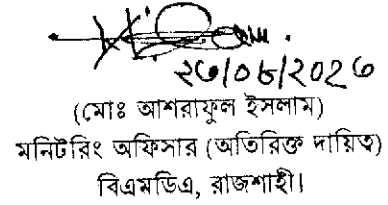 (মোঃ আশরাফুল ইসলাম)
মনিটরিং অফিসার (অতিরিক্ত দায়িত্ব)
বিএমডিএ, রাজশাহী।